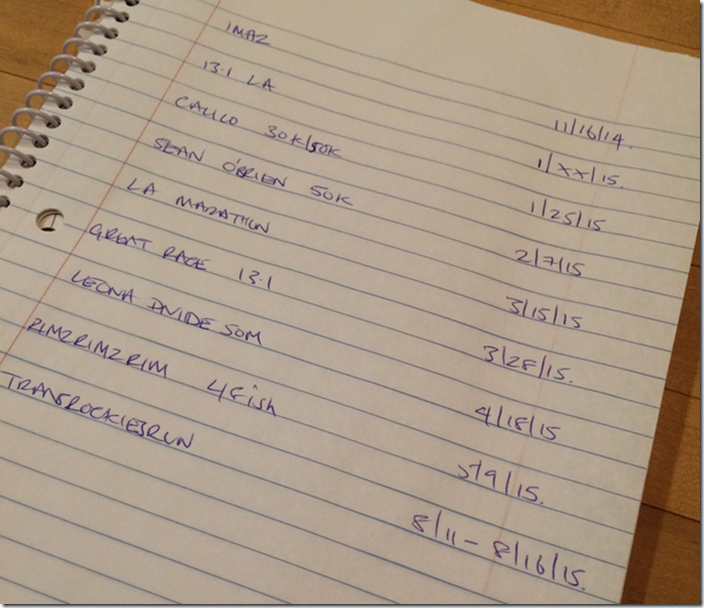 IMAZ 11/16/14.
13.1 LA 1/XX/15.
CALICO 30K/50K 1/25/15
SEAN O'BRIEN 50K 2/7/15
LA MARATHON 3/15/15
GREAT RACE 13.1 3/28/15.
LEONA DIVIDE 50M 4/18/15
RIM2RIM2RIM 4Fish 5/9/15.
TRANSROCKIESRUN 8/11 - 8/16/15.